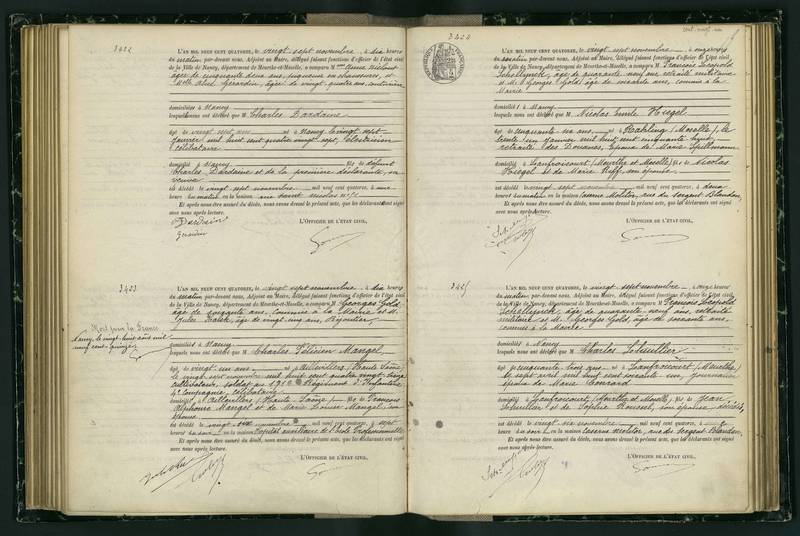 3422
L'AN MIL NEUF CENT QUATORZE, le vingt sept novembre, à dix heures
du matin par-devant nous, Adjoint au Maire, délégué faisant fonctions d'officier de l'état civil
de la Ville de Nancy, département de Meurthe-et-Moselle, a comparu M
âgée de cinquante deux ans, piqueuse en chaussures, et
Melle Gérardin, âgée de vingt quatre ans, couturière
domiciliées à Nancy
lesquelles nous ont déclaré que M Charles Dardaine
âgé de vingt sept ans né à Nancy le vingt sept
janvier mil huit cent quatre vingt sept, électricien
célibataire
domicilié à Nancy fils de défunt
Charles Dardaine et de la première déclarante, sa
veuve
est décédé le vingt sept novembre mil neuf cent quatorze, à une
heure du matin en la maison rue Saint Nicolas
Et après nous être assuré du décès, nous avons dressé le présent acte, que les déclarants ont signé
avec nous après lecture.
L'OFFICIER DE L'ÉTAT CIVIL,
Gérardin
3423
L'AN MIL NEUF CENT QUATORZE, le vingt sept novembre, à dix heures
du matin par-devant nous, Adjoint au Maire, délégué faisant fonctions d'officier de l'état civil
de la Ville de Nancy, département de Meurthe-et-Moselle, a comparu M Georges Gold
âgé de soixante ans, commis à la Mairie et M.
Jules âgé de vingt cinq ans, Bijoutier
Mort pour la France
Nancy, le vingt huit août mil
neuf cent quinze
domiciliés à Nancy
lesquels nous ont déclaré que M Charles Félicien Mangel
âgé de vingt un ans né à Aillevillers (Haute Saône)
le vingt sept novembre mil huit cent quatre vingt treize
célibataire, soldat au Régiment d'Infanterie
4e Compagnie, célibataire
domicilié à Aillevillers (Haute Saône) fils de François
Alphonse Mangel et de Marie Mangel, son
épouse
est décédé le vingt six novembre mil neuf cent quatorze, à sept
heures du soir en la maison Hôpital auxiliaire de l'école Professionnelle
Et après nous être assuré du décès, nous avons dressé le présent acte, que les déclarants ont signé
avec nous après lecture.
L'OFFICIER DE L'ÉTAT CIVIL,
3424
L'AN MIL NEUF CENT QUATORZE, le vingt sept novembre, à onze heures
du matin par-devant nous, Adjoint au Maire, délégué faisant fonctions d'officier de l'état civil
de la Ville de Nancy, département de Meurthe-et-Moselle, a comparu M François Léopold
âgé de quarante neuf ans retraité militaire
et M. Georges Gold âgé de soixante ans, commis à la
Mairie
domiciliés à Nancy
lesquels nous ont déclaré que M Nicolas Emile Hiegel
âgé de cinquante six ans né à Rahling (Moselle), le
trente un janvier mil huit cent cinquante huit,
retraité des Douanes, époux de Marie Spillmann
domicilié à Lanfroicourt (Meurthe et Moselle) fils de Nicolas
Hiegel et de Marie Ruff, son épouse
est décédé le vingt sept novembre mil neuf cent quatorze, à deux
heures du matin en la maison caserne Molitor, rue du sergent Blandan
Et après nous être assuré du décès, nous avons dressé le présent acte, que les déclarants ont signé
avec nous après lecture.
L'OFFICIER DE L'ÉTAT CIVIL,
3425
L'AN MIL NEUF CENT QUATORZE, le vingt sept novembre, à onze heures
du matin par-devant nous, Adjoint au Maire, délégué faisant fonctions d'officier de l'état civil
de la Ville de Nancy, département de Meurthe-et-Moselle, a comparu M François Léopold
âgé de quarante neuf ans, retraité
militaire et M. Georges Gold, âgé de soixante ans,
commis à la Mairie
domiciliés à Nancy
lesquels nous ont déclaré que M Charles Lhuillier
âgé de cinquante trois ans né à Lanfroicourt (Meurthe)
le sept avril mil huit cent soixante un, journalier
époux de Marie Conrard
domicilié à Lanfroicourt (Meurthe et Moselle) fils de Jean
Lhuillier et de Sophie Roussel, son épouse, décédés
est décédé le vingt six novembre mil neuf cent quatorze, à
heures du soir en la maison caserne Molitor, rue du sergent Blandan
Et après nous être assuré du décès, nous avons dressé le présent acte, que les déclarants ont signé
avec nous après lecture.
L'OFFICIER DE L'ÉTAT CIVIL,